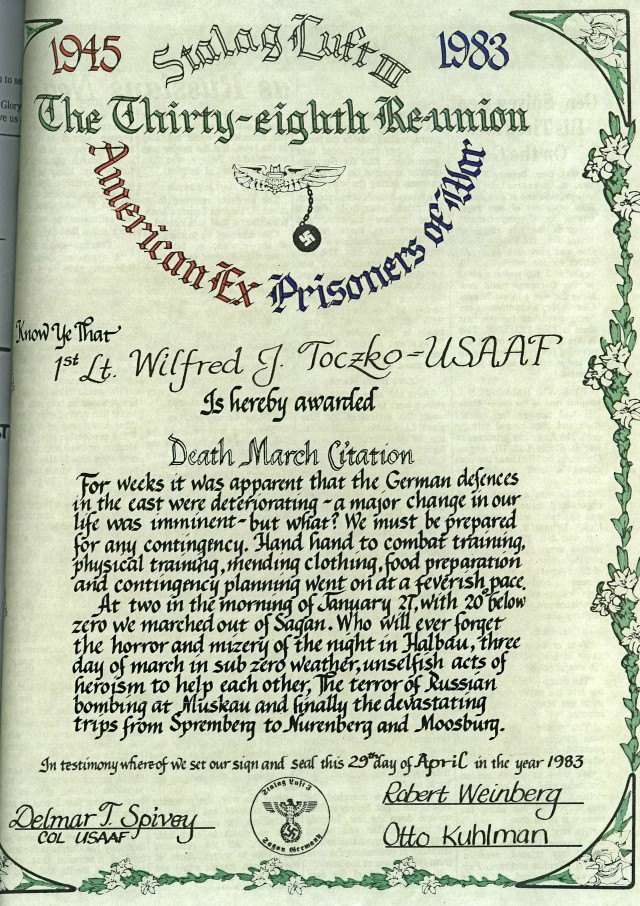 1945 Stalag Luft III 1983
The Thirty-eighth Re-union
American Ex Prisoners of War
Know Ye That
1st Lt. Wilfred J. Toczko-USAAF
Is hereby awarded
Death March Citation
For weeks it was apparent that the German defences
in the east were deteriorating - a major change in our
life was imminent - but what? We must be prepared
for any contingency. Hand hand to combat training,
physical training, mending clothing, food preparation
and contingency planning went on at a feverish pace.
At two in the morning of January 27, with 20° below
zero we marched out of Sagan. Who will ever forget
the horror and mizery of the night in Halbau, three
day of march in sub zero weather, unselfish acts of
heroism to help each other, The terror of Russian
bombing at Muskau and finally the devastating
trips from Spremberg to Nurenberg and Moosburg.
In testimony where of we set our sign and seal this 29th day of April in the year 1983
Delmar T. Spivey
COL USAAF
Stalag Luft 3
Sagan Germany
Robert Weinberg
Otto Kuhlman
to se
Glory
ve us